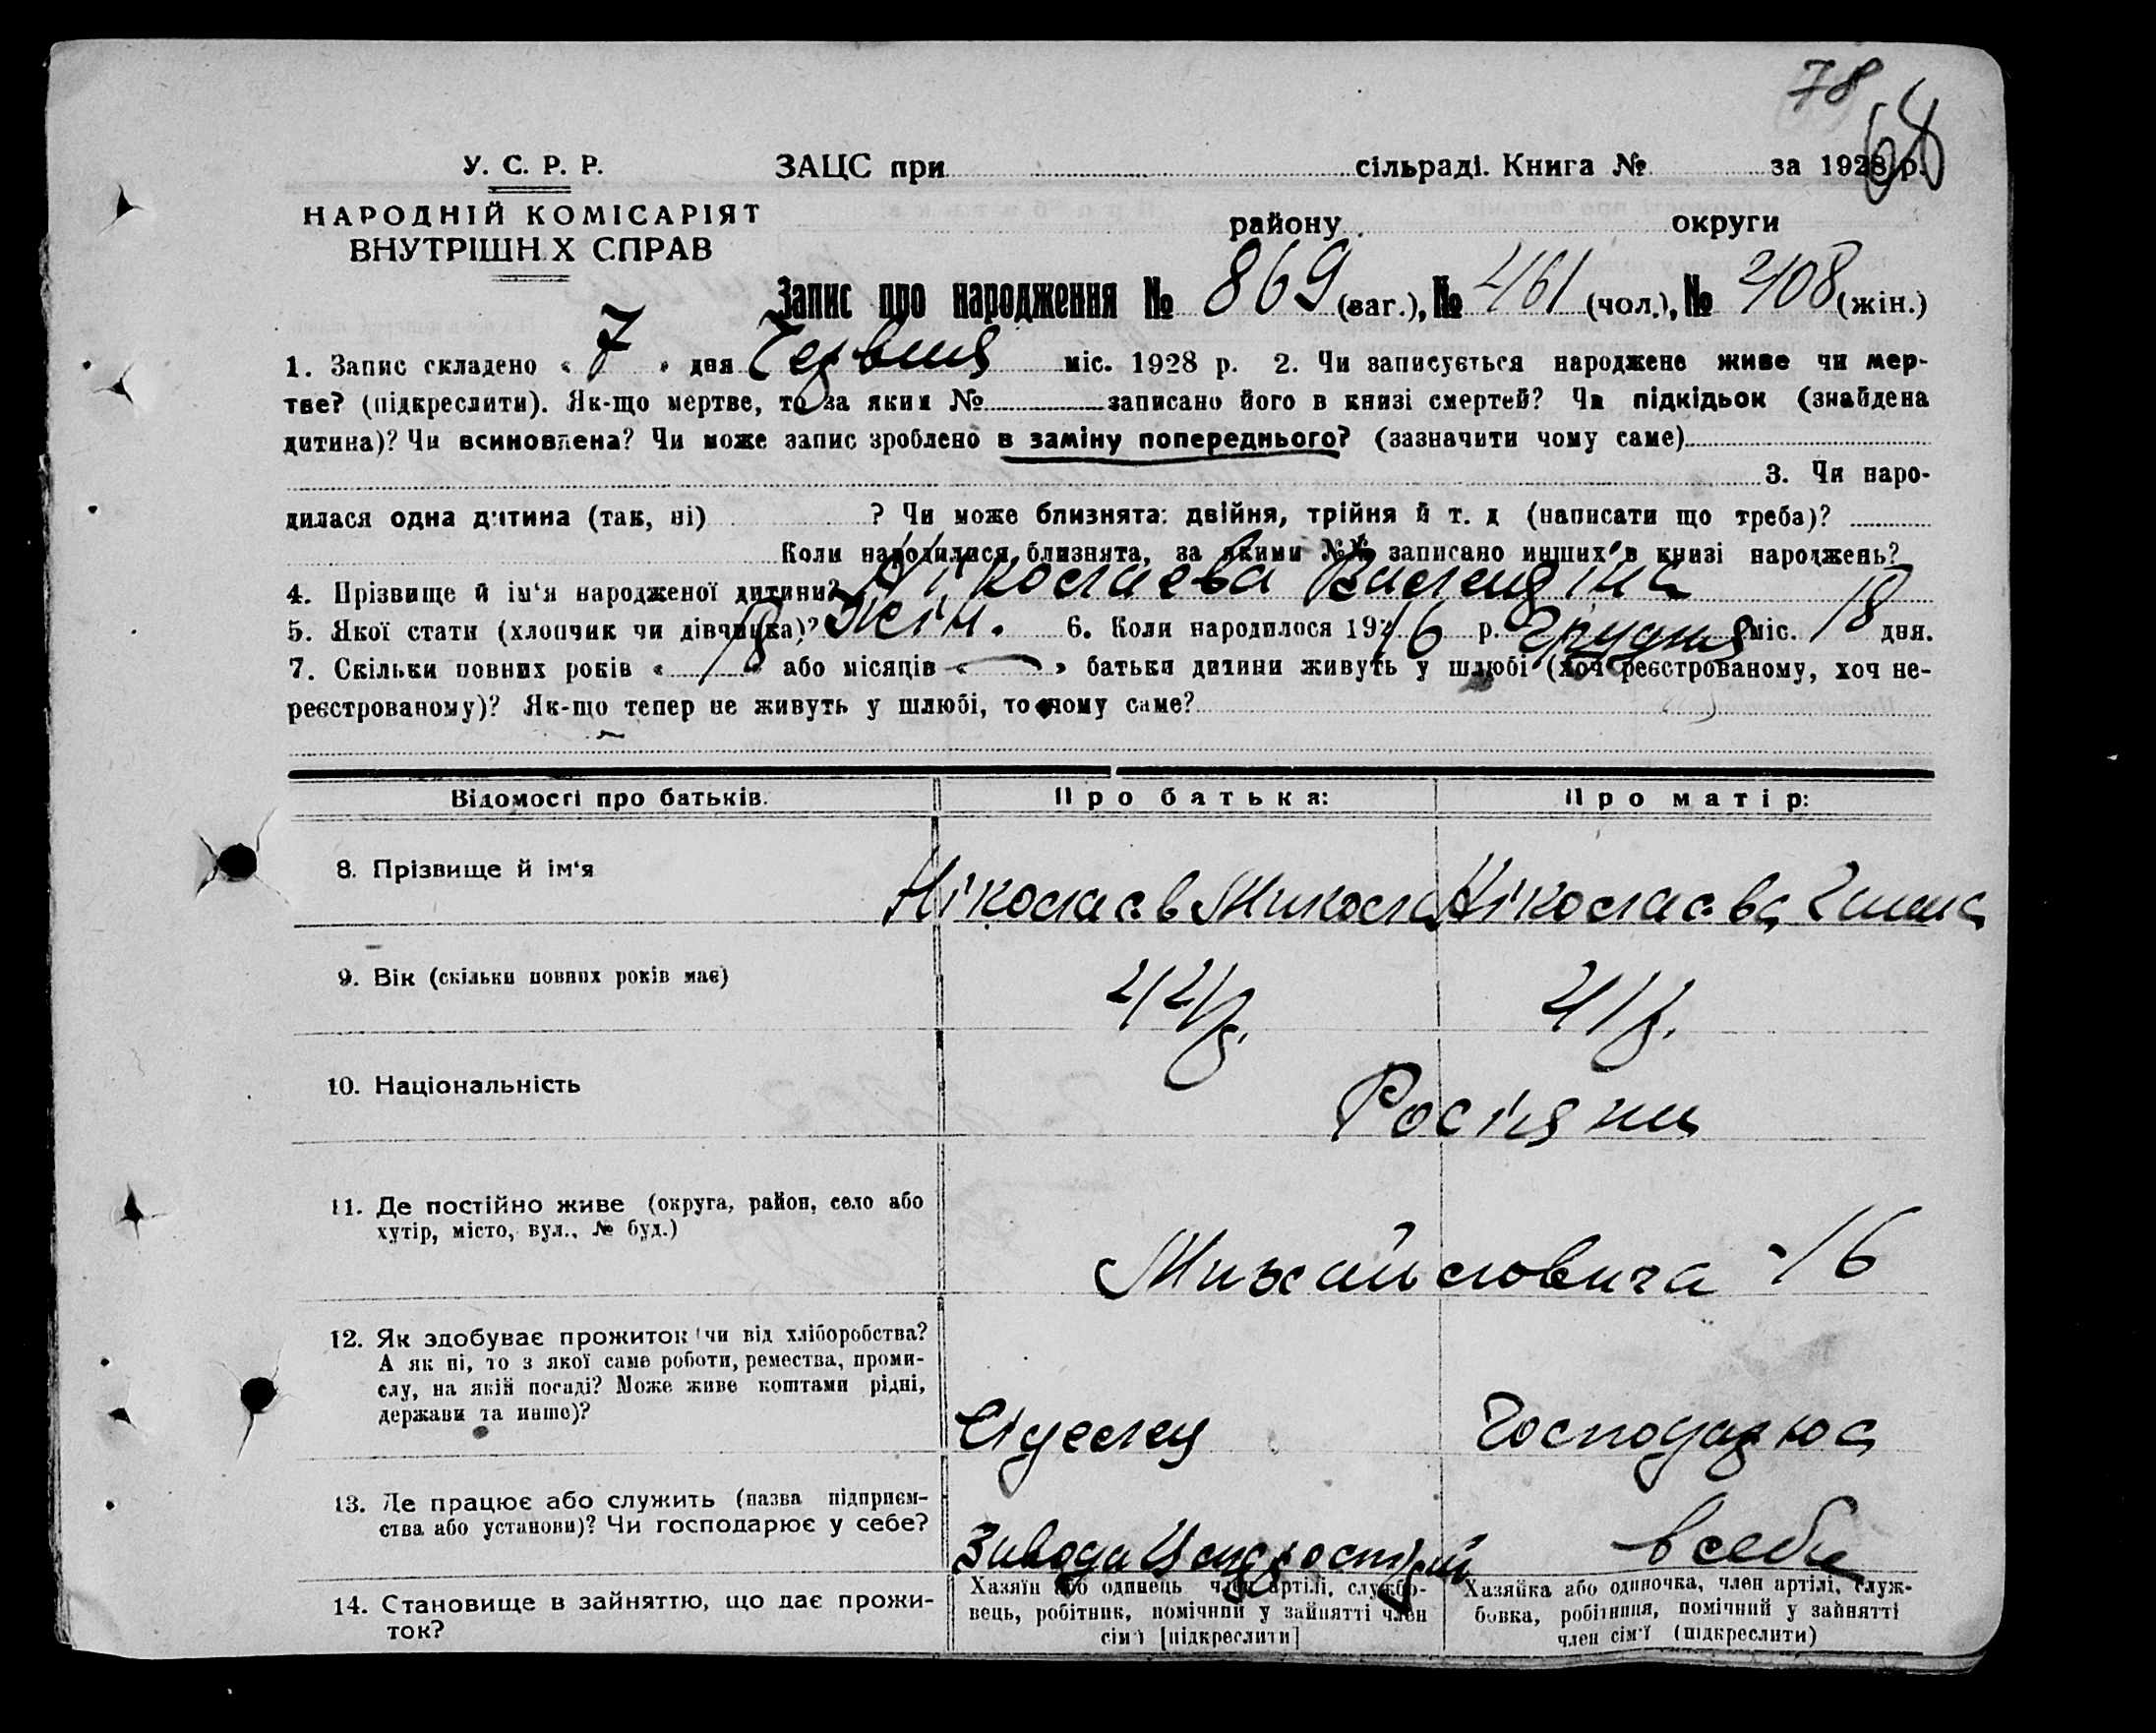 78
68
У. С. Р. Р.
ЗАЦС при сільраді. Книга № за 1928 р.
НАРОДНІЙ КОМІСАРІЯТ
ВНУТРІШН Х СПРАВ
району округи
Запис про народження № 869 (заг.), № 461 (чол.), № 408 (жін.)
1. Запис складено « 7 » дня Червня міс. 1928 р. 2. Чи записується народжене живе чи мер-
тве? (підкреслити). Як-що мертве, то за яким № записано його в книзі смертей? Чи підкідьок (знайдена
дитина)? Чи всиновлена? Чи може запис зроблено в заміну попереднього? (зазначити чому саме)
3. Чи наро-
дилася одна дитина (так, ні) ? Чи може близнята: двійня, трійня й т. д (написати що треба)?
Коли народилися близнята, за якими №№ записано инших в книзі народжень?
4. Прізвище й ім'я народженої дитини? Ніколаєва Валендіна
5. Якої стати (хлопчик чи дівчинка)? Жін. 6. Коли народилося 1916 р. Грудня міс. 18 дня.
7. Скільки повних років « 18 » або місяців « — » батьки дитини живуть у шлюбі (хоч реєстрованому, хоч не-
реєстрованому)? Як-що тепер не живуть у шлюбі, то чому саме?
Відомості про батьків. Про батька: Про матір:
8. Прізвище й ім'я Ніколаєв Микола Ніколаєва Ганна
9. Вік (скільки повних років має) 42 р. 41 р.
10. Національність Росіяни
11. Де постійно живе (округа, район, село або
хутір, місто, вул., № буд.)
Михайловича 16
12. Як здобуває прожиток чи від хліборобства?
А як ні, то з якої саме роботи, ремества, проми-
слу, на якій посаді? Може живе коштами рідні,
держави та инше)?
Слюсар Господарює
13. Де працює або служить (назва підприєм-
ства або установи)? Чи господарює у себе?
Завода в себе
14. Становище в зайняттю, що дає прожи-
ток?
Хазяїн або одинець член артілі, службо-
вець, робітник, помічний у зайнятті член
сім'ї [підкреслити]
Хазяйка або одиночка, член артілі, служ-
бовка, робітниця, помічний у зайнятті
член сім'ї (підкреслити)